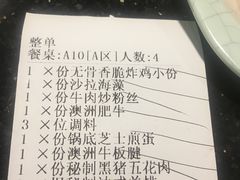 整单
餐桌:A10[A区]人数:4
1 ×份无骨香脆炸鸡小份
1 ×份沙拉海藻
1 ×份牛肉炒粉丝
1 ×份澳洲肥牛
3 ×位调料
1 ×份锅底芝士煎蛋
1 ×份澳洲牛板腱
1 ×份秘制黑猪五花肉